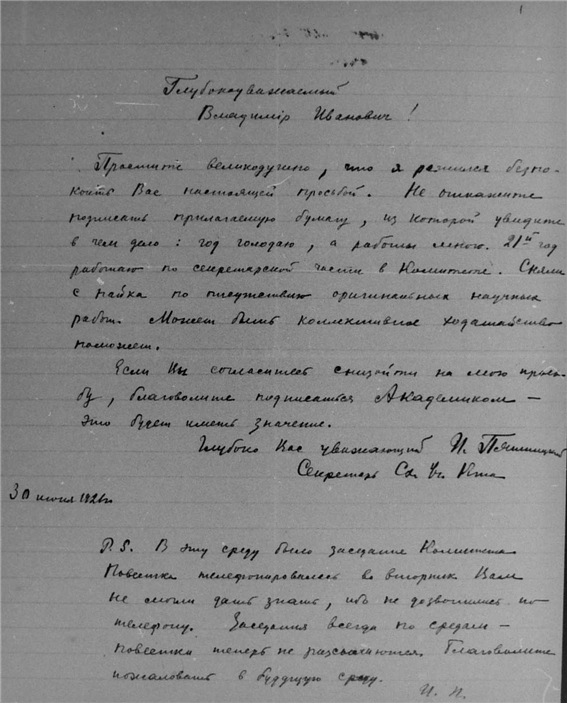 Глубокоуважаемый
Владимір Иванович!
Простите великодушно, что я решился безпо-
коить Вас настоящей просьбой. Не откажите
подписать прилагаемую бумагу, из которой увидите
в чем дело: год голодаю, а работы много. 21ый год
работаю по секретарской части в Комитете. Сняли
с пайка по отсутствию оригинальных научных
работ. Может быть коллективное ходатайство
поможет.
Если Вы согласитесь снизойти на мою прось-
бу, благоволите подписаться Академиком —
это будет иметь значение.
Глубоко Вас уважающий И. Пятницкий
Секретарь Уч. К-та
30 июня 192 г.
P.S. В эту среду было заседание Комитета
Повестка телефонировалась во вторник Вам
не могли дать знать, ибо не дозвонились по
телефону. Заседания всегда по средам —
повестки теперь не рассылаются. Благоволите
пожаловать в будущую среду.
И. П.